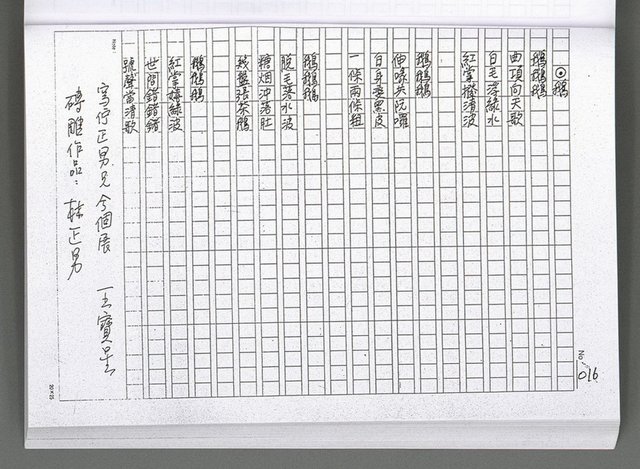 ⊙鵝
鵝鵝鵝
曲項向天歌
白毛浮綠水
紅掌撥清波
鵝鵝鵝
伸啄失沉嚨
白身變黑皮
一條兩條粗
鵝鵝鵝
脫毛落水波
穗烟沖落肚
鵝鵝鵝
紅掌撥綠波
世間錯錯錯
號聲當清歌
寫佇正男兄今個展 王寶星
磚雕作品：林正男
Note
No 016
20×25